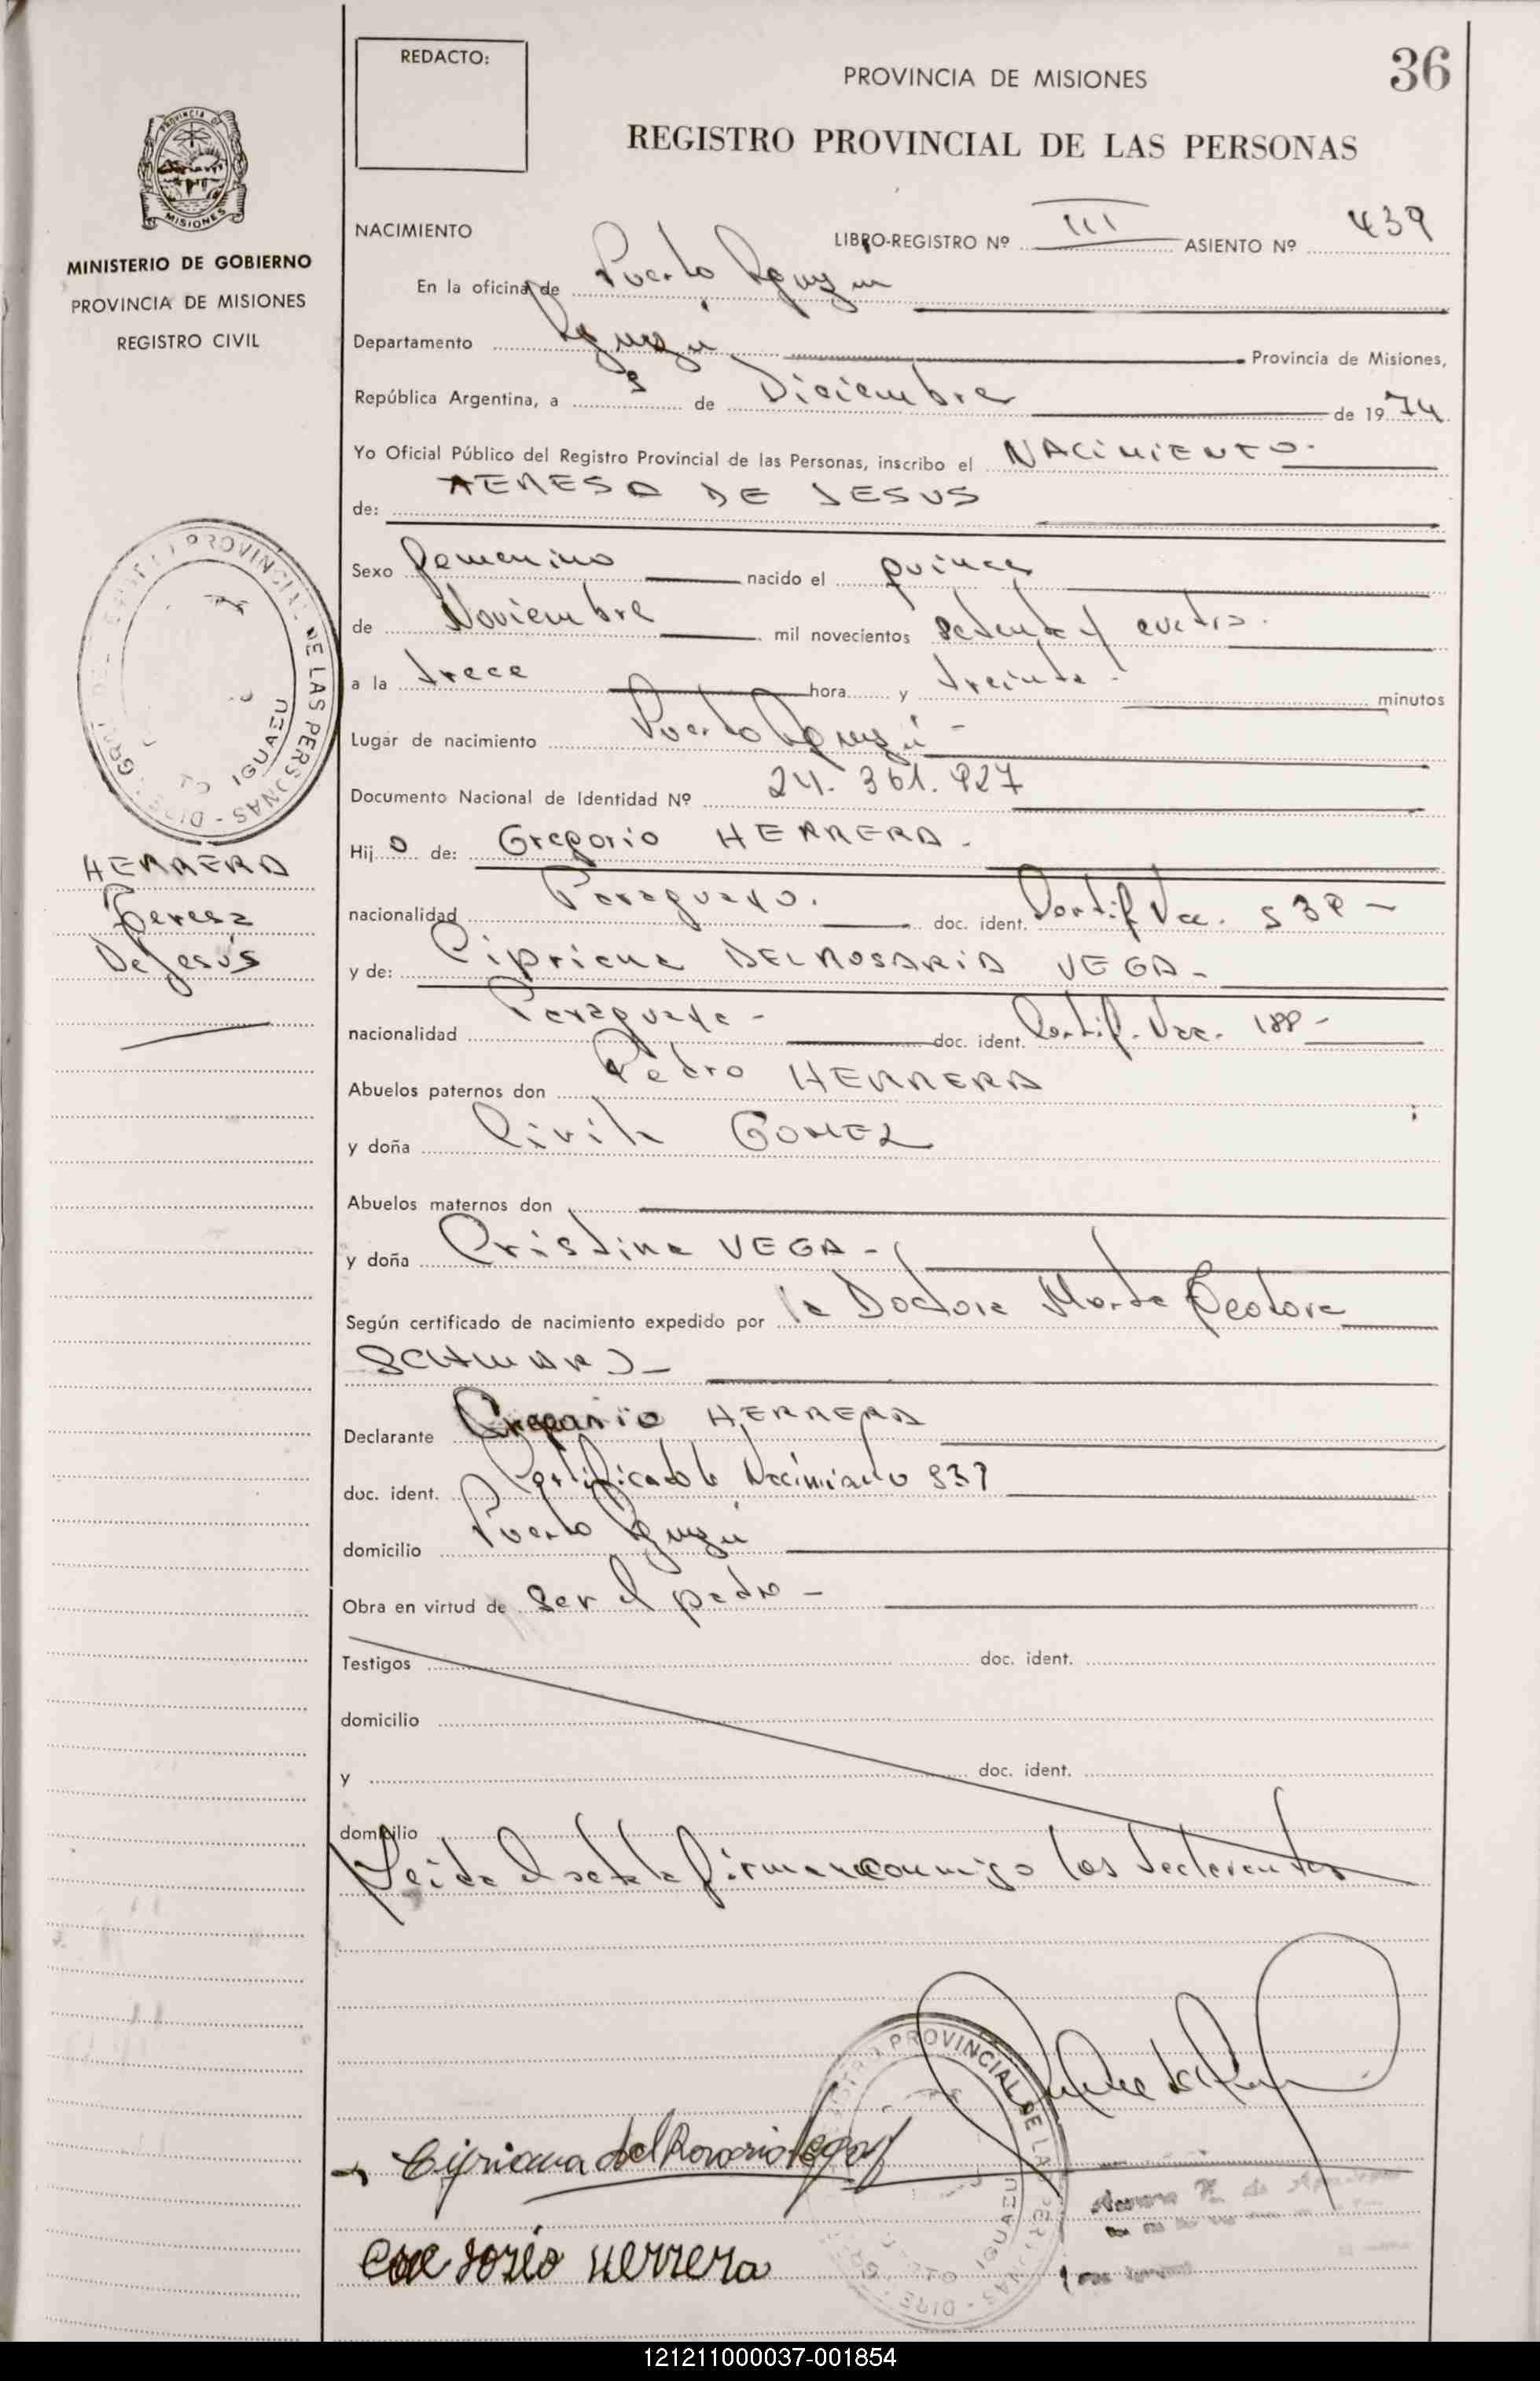 36
REDACTO:
PROVINCIA DE MISIONES
REGISTRO PROVINCIAL DE LAS PERSONAS
PROVINCIA DE
MISIONES
MINISTERIO DE GOBIERNO
PROVINCIA DE MISIONES
REGISTRO CIVIL
NACIMIENTO LIBRO-REGISTRO Nº III ASIENTO Nº 439
En la oficina de Puerto Iguazu
Departamento Iguazú Provincia de Misiones,
República Argentina, a de Diciembre de 1974
Yo Oficial Público del Registro Provincial de las Personas, inscribo el NACIMIENTO.
de: TERESA DE JESUS
Sexo Femenino nacido el quince
de Noviembre mil novecientos setenta y cuatro.
a la trece hora y treinta - minutos
Lugar de nacimiento Puerto Iguazú -
Documento Nacional de Identidad Nº 24. 361. 927
Hij a de: Gregorio HERRERA -
nacionalidad Paraguayo. doc. ident. Certif. Nac. 538 -
y de: Cipriana DEL ROSARIO VEGA -
nacionalidad Paraguaya - doc. ident. Certif. Nac. 188 -
Abuelos paternos don Pedro HERRERA
y doña GOMEZ
Abuelos maternos don
y doña Cristina VEGA -
Según certificado de nacimiento expedido por la Doctora Marta Teodora
Declarante Gregorio HERRERA
doc. ident. Certificado de Nacimiento
domicilio Puerto Iguazú
Obra en virtud de ser el padre -
Testigos doc. ident.
domicilio
y doc. ident.
domicilio
Leida el acta la firman conmigo los declarantes
HERRERA
Teresa
De Jesús
PROVINCIAL DE LAS PERSONAS - DIRE
IGUAZU
PROVINCIAL DE LAS PERSONAS - DIRE
IGUAZU
Cipriana del Rosario Vega
Herrera
121211000037-001854